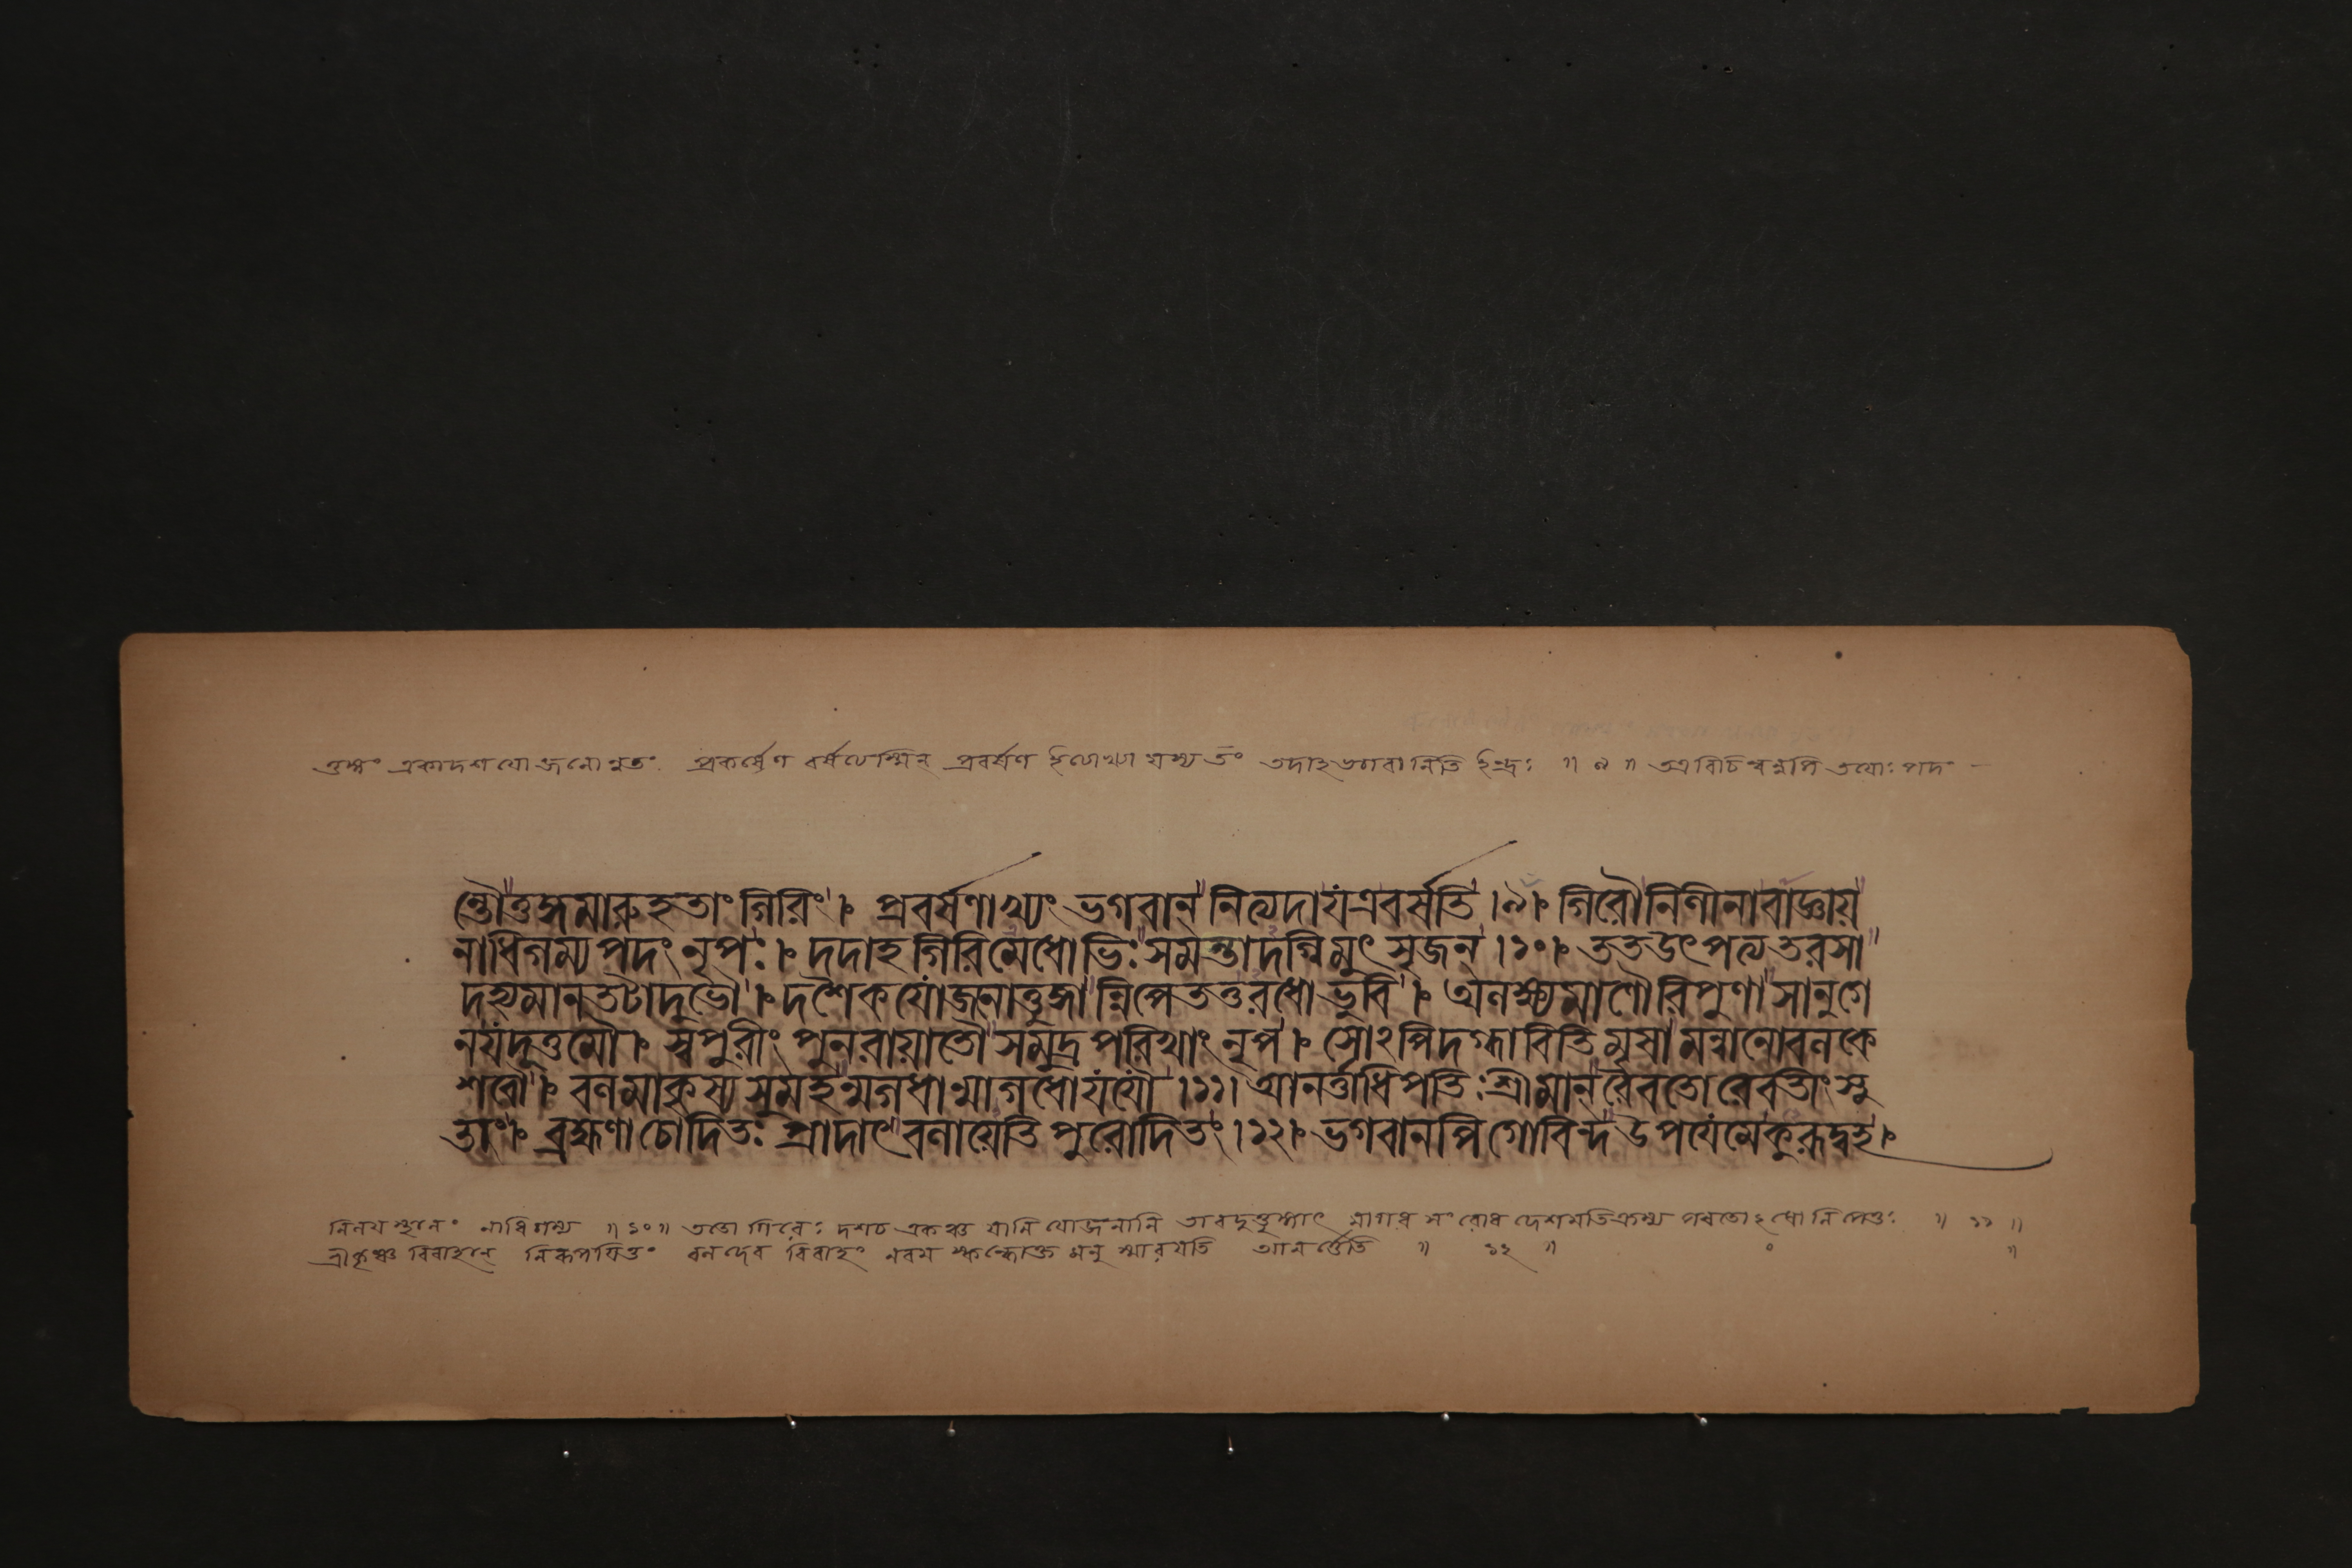 তুঙ্গং একাদশযোজনোন্নতং প্রকর্ষেণ বর্ষত্যস্মিন্ প্রবর্ষণ ইত্যাখ্যা যস্য তং তদাহ ভগবানিতি ইন্দ্রঃ ॥ ৯ ॥ তত্র বিচিন্বন্নপি তয়োঃ পদং
ন্তৌতুঙ্গমারুহতাং গিরিং । প্রবর্ষণাখ্যং ভগবান্ নিত্যদাযত্রবর্ষতি ।৯। গিরৌনিলীনাবাজ্ঞায়
নাধিগম্য পদং নৃপঃ । দদাহ গিরিমেধোভিঃ সমন্তাদগ্নিমুৎসৃজন্ ।১০। তত উৎপত্য তরসা
দহ্যমানতটাদুভৌ । দশৈকযোজনাত্তুঙ্গান্নিপেততুরধোভুবি । অলক্ষ্যমাণৌরিপুণা সানুগে
নযদূত্তমৌ । স্বপুরীং পুনরায়াতৌ সমুদ্রপরিখাং নৃপ । সোঽপিদগ্ধাবিতি মৃষা মন্বানোবলকে
শবৌ । বলমাকৃষ্য সুমহন্মগধান্মাগধোযযৌ ।১১। আনর্ত্তাধিপতিঃ শ্রীমান্ রৈবতোরেবতীং সু
তাং । ব্রহ্মণা চোদিতঃ প্রাদাৎ বলায়েতি পুরোদিতং ।১২। ভগবানপি গোবিন্দ উপযেমেকুরূদ্বহ।
নিলয়স্থানং নাধিগম্য ॥ ১০ ॥ ততো গিরেঃ দশচ একঞ্চ যানি যোজনানি তাবদুত্তুঙ্গাৎ মাগধ সংরোধ দেশমতিক্রম্য পরতোঽধো নিপেতুঃ ॥ ১১ ॥
শ্রীকৃষ্ণ বিবাহান্ নিরূপযিতুং বলদেব বিবাহং নবম স্কন্ধোক্ত মনুস্মারযতি আনর্ত্তেতি ॥ ১২ ॥ ॥